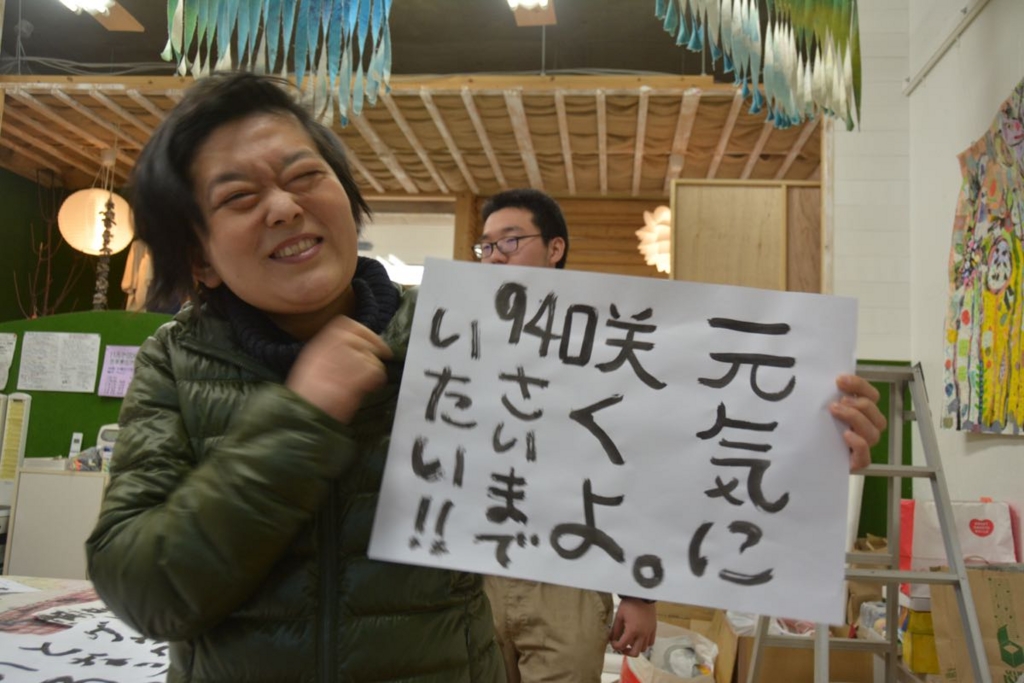 元気に
咲くよ。
94さいまで
いたい!!